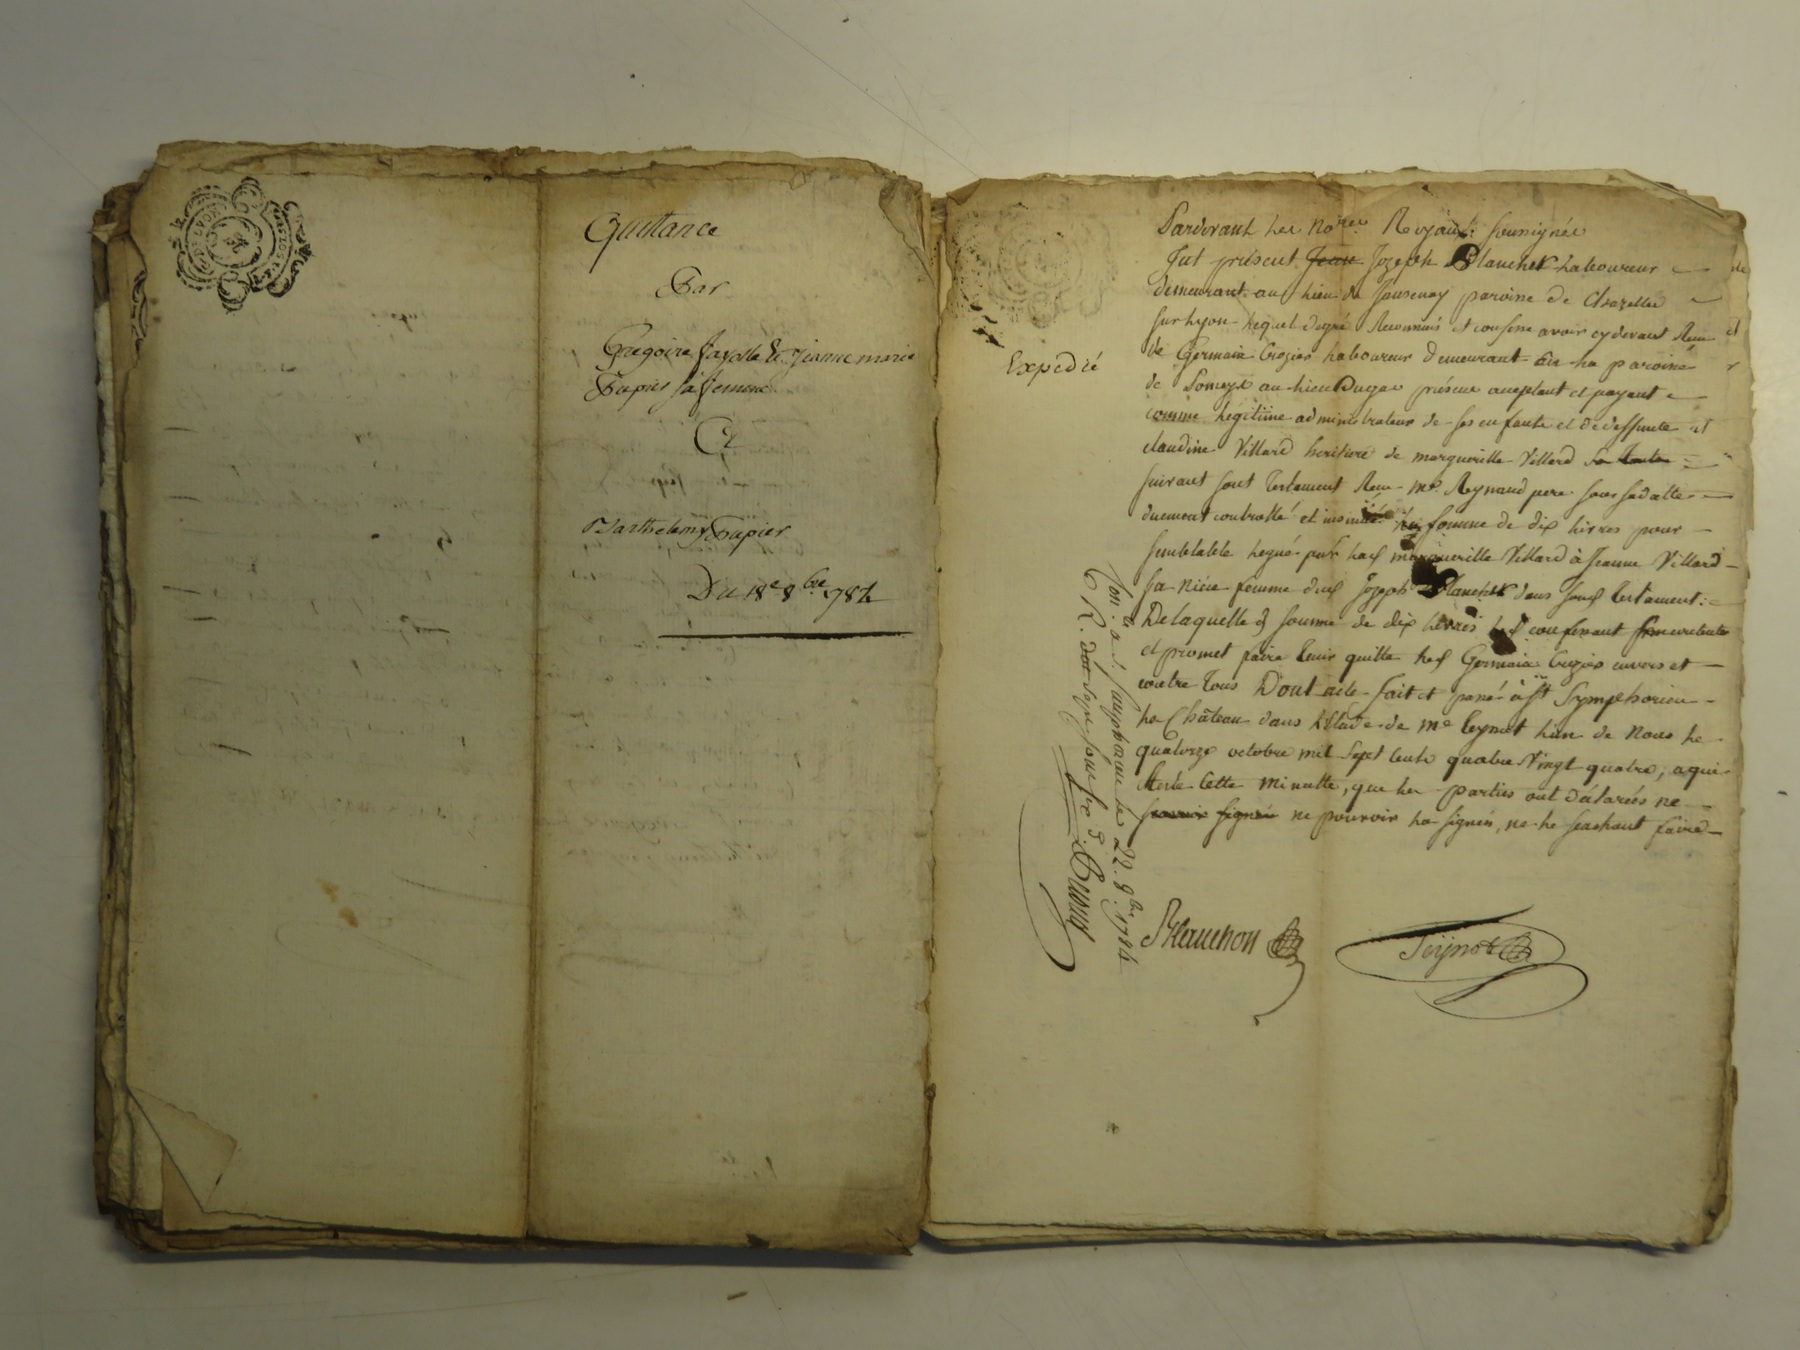 Quittance
Par
Gregoire Fayolle & Jeanne marie
Dupier sa femme
A
Barthelemy Dupier
Du 18e 8bre 1784
Expedié
Pardevant les Nores Royaux soussignés
fut présent Jean Jozeph Blanchet laboureur
demeurant au lieu de paroisse de Chazelles
sur Lyon lequel degré Reconnois et confesse avoir cydevant Reçu
de Germain Crozier laboureur demeurant en la paroisse
de Pomeys au lieu présent acceptant et payant
comme legitime administrateur de ses enfants et de deffunte
claudine Villard heritiere de margueritte Villard sa tante
suivant son Testament Reçu Me Reynaud pere sous sa datte
duement controllé et insinué la somme de dix livres pour
semblable legué par lad margueritte Villard à Jeanne Villard
sa niéce femme dud Jozeph Blanchet dans sond testament :
De laquelle d somme de dix livres led confessant
et promet faire tenir quitte led Germain Crozier envers et
contre tous Dont acte fait et passé à St Symphorien
le Château dans l'étude de Me l'un de Nous le
quatorze octobre mil sept cents quatre vingt quatre, a qui
reste cette minutte, que les parties ont déclarées ne
sçavoir signér ne pouvoir la signér, ne le seachant faire
Con. a St Simphorien le 22. 8bre. 1784
R. dix sept sous